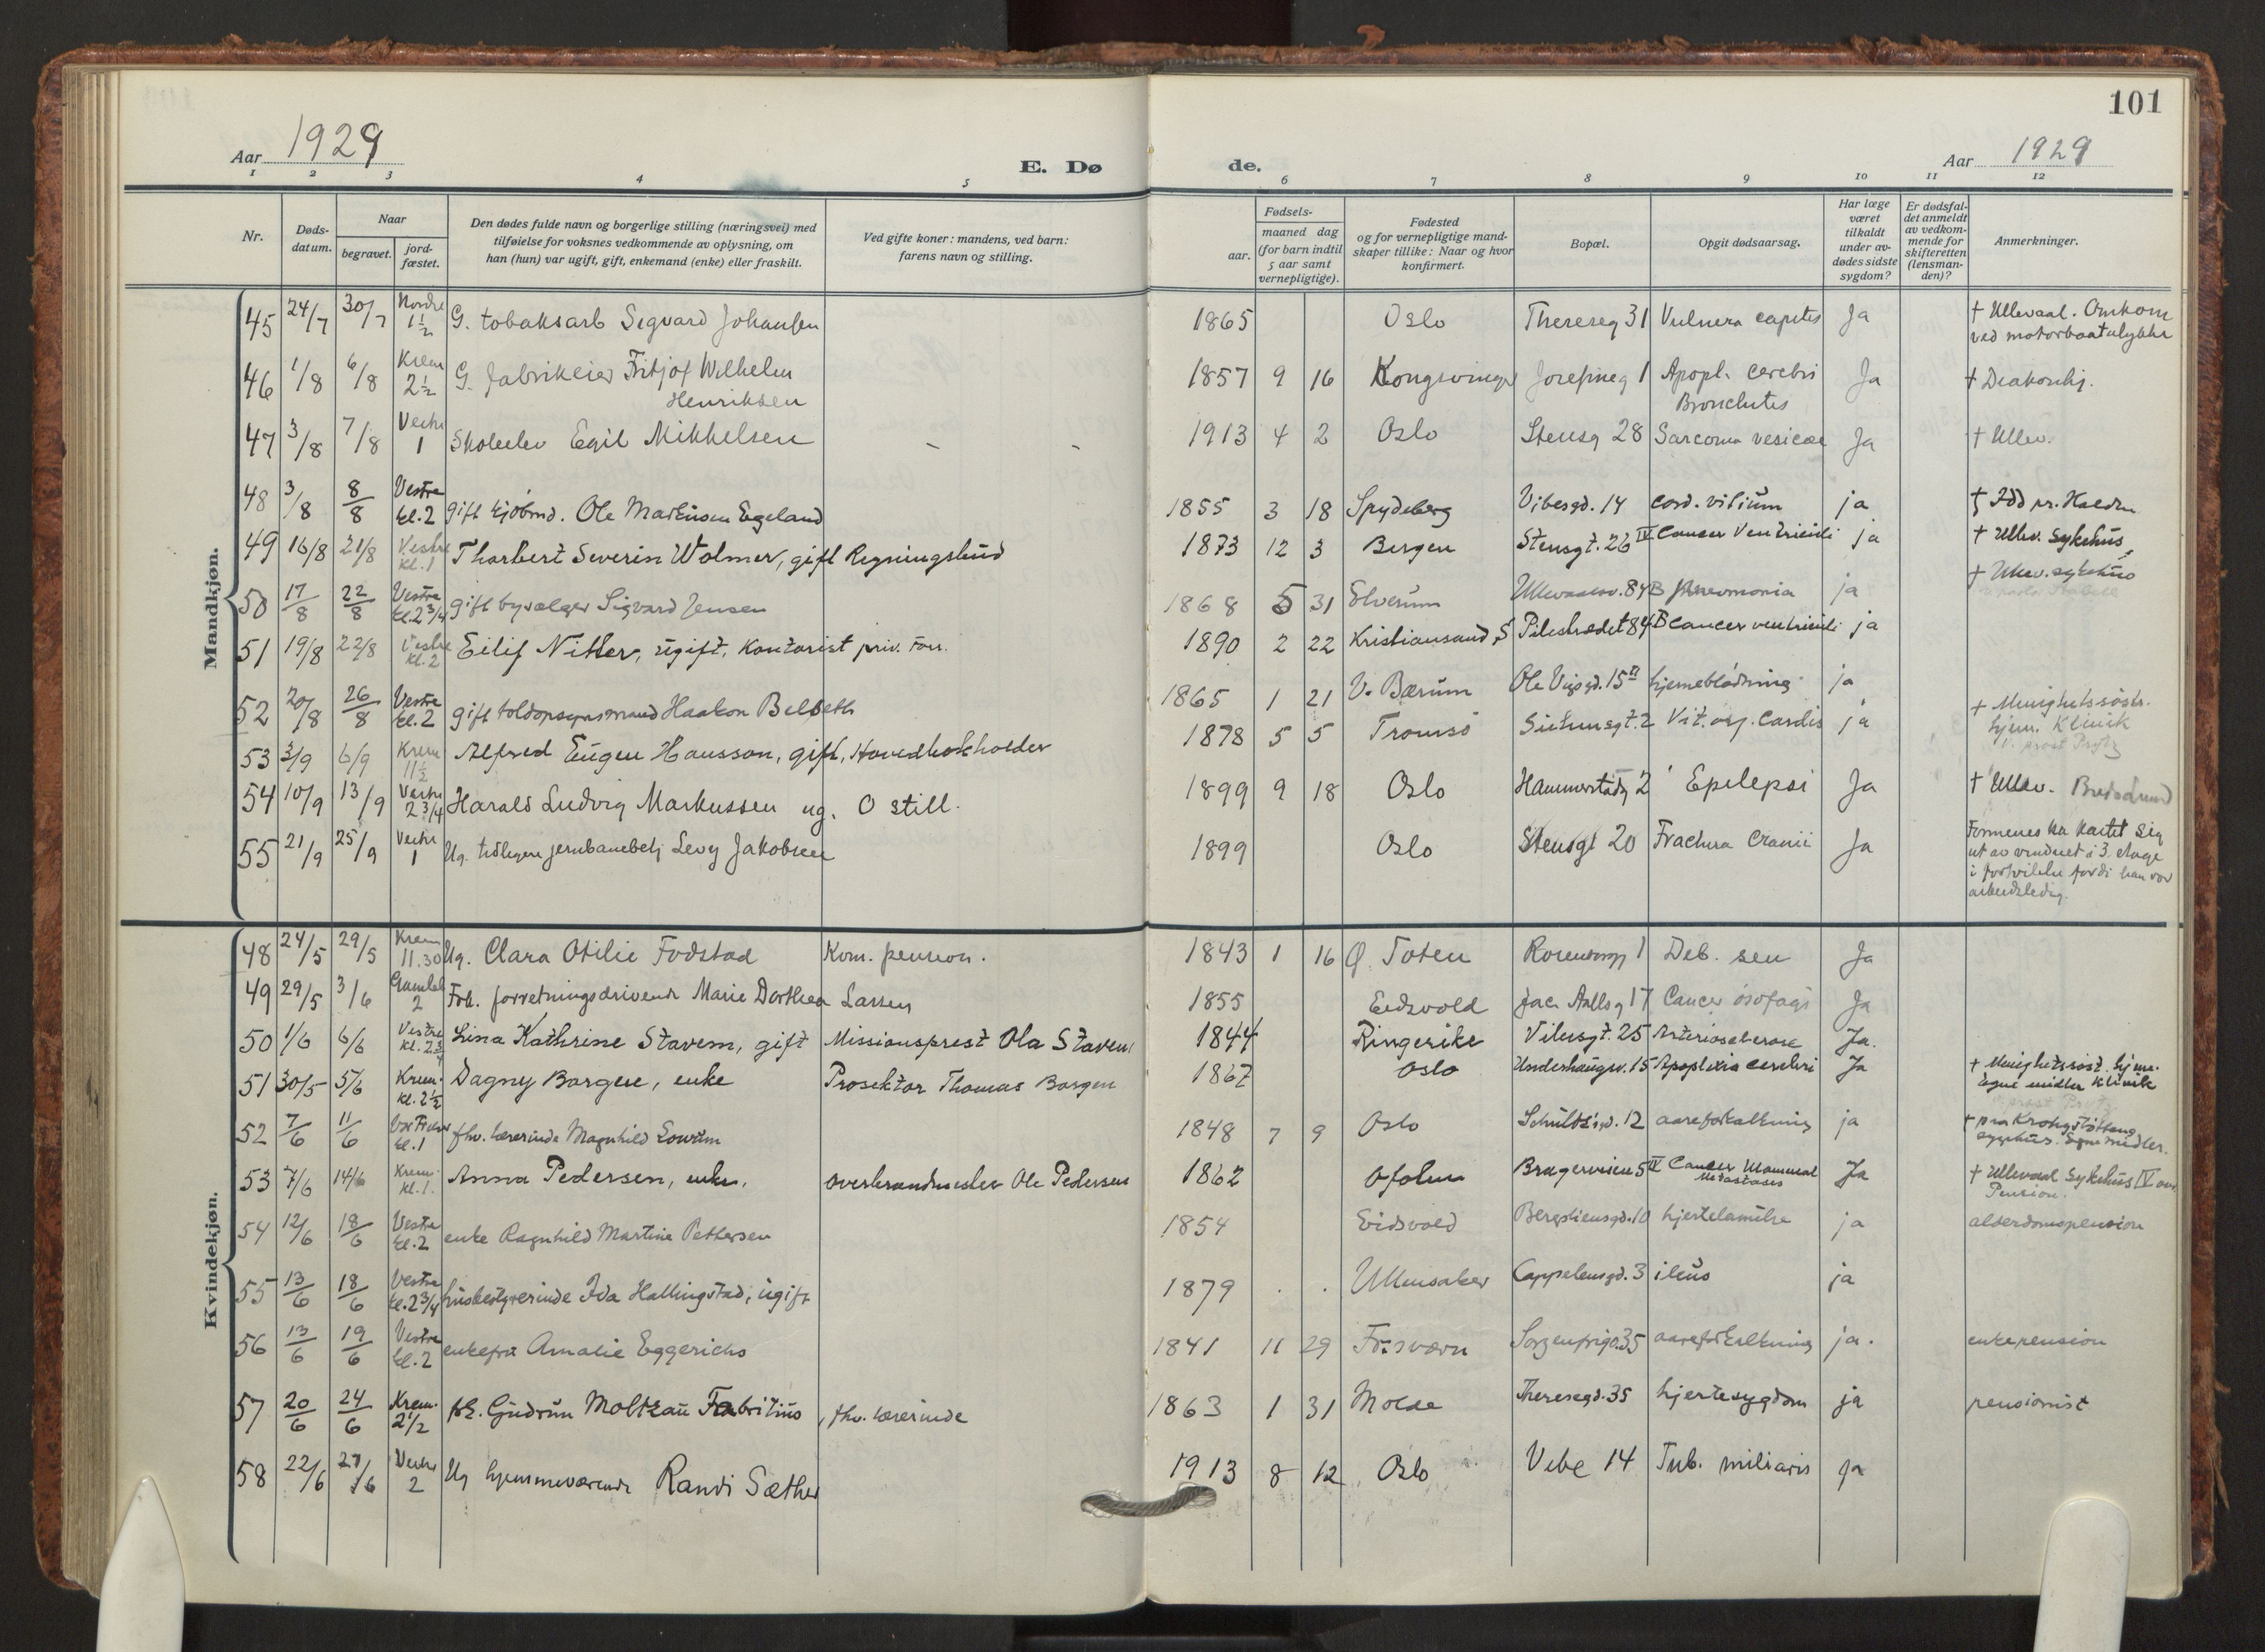 101
Aar 1929
E. Dø
de.
Aar 1929
1 2 3 4 5 6 7 8 9 10 11 12
Nr.
Døds-
datum.
Naar
begravet.
jord-
fæstet.
Den dødes fulde navn og borgerlige stilling (næringsvei) med
tilføielse for voksnes vedkommende av oplysning, om
han (hun) var ugift, gift, enkemand (enke) eller fraskilt.
Ved gifte koner: mandens, ved barn:
farens navn og stilling.
aar.
Fødsels-
maaned dag
(for barn indtil
5 aar samt
vernepligtige).
Fødested
og for vernepligtige mand-
skaper tillike: Naar og hvor
konfirmert.
Bopæl.
Opgit dødsaarsag.
Har læge
været
tilkaldt
under av-
dødes sidste
sygdom?
Er dødsfal-
det anmeldt
av vedkom-
mende for
skifteretten
(lensman-
den)?
Anmerkninger.
Mandkjøn.
45 24/7 30/7 Nordre 1½ G. tobaksarb Sigvard Johansen 1865 Oslo Thereseg 31 Vulnera capitis Ja † Ullevaal. Omkom
ved motorbaatulykke
46 1/8 6/8 Krem 2½ G. fabrikeier Fritjof Wilhelm 1857 9 16 Kongsvinger Josefineg 1 Apopl. cerebri Ja † Diakonhj.
Henriksen Bronchitis
47 3/8 7/8 Vestre 1 Skoleelev Egil Mikkelsen - - 1913 4 2 Oslo Stensg 28 Sarcoma vesicae Ja † Ullev.
48 3/8 8/8 Vestre kl. 2 gift kjöbmd. Ole Markusen Egeland 1855 3 18 Spydeberg Vibesgd. 14 cord. vitium ja † Idd pr. Halden
49 16/8 21/8 Vestre kl. 1 Tharbert Severin Wolmer, gift Regningsbud 1873 12 3 Bergen Stensgt. 26 IV Cancer Ventriculi ja † Ullev. Sykehus
50 17/8 22/8 Vestre kl. 2¾ gift byselger Sigvard Jensen 1868 5 31 Elverum Ullevaalsv. 84 B pneumonia ja † Ullev. sykehus
51 19/8 22/8 Vestre kl. 2 Eilif Nitter, ugift, Kontorist priv. Forr. 1890 2 22 Kristiansand S Pilestrædet 84 B cancer ventriculi ja
52 20/8 26/8 Vestre kl. 2 gift toldopsynsmand Haakon Belseth 1865 1 21 V. Bærum Ole Vigsgd. 15 II hjerneblödning ja † Menighetssöstr.
hjem. Klinik
53 3/9 6/9 Krem 11½ Alfred Eugen Hansson, gift, Hovedbokholder 1878 5 5 Tromsö 2 Vit. org. Cordis ja
54 10/9 13/9 Vestre 2¾ Harald Ludvig Markussen ug. O still. 1899 9 18 Oslo Hammerstadg 2 Epilepsi Ja † Ullev.
55 21/9 25/9 Vestre 1 Ug. tidligere jernbanebetj Levy Jakobsen 1899 Oslo Stensgt 20 Fractura Cranii Ja Formenes ha kastet sig
ut av vinduet i 3. etage
i fortvilelse fordi han var
arbeidsledig.
Kvindekjøn.
48 24/5 29/5 Krem 11.30 Ug. Clara Otilie Fodstad Kom. pension. 1843 1 16 Ø. Toten Rosenborgg 1 Deb. sen Ja
49 29/5 3/6 Gamleb 2 Frk. forretningsdrivende Marie Dorthea Larsen 1855 Eidsvold Jac. Aallsg 17 Cancer ösofagi Ja
50 1/6 6/6 Vestre kl. 2¾ Lina Kathrine Stavem, gift Missionsprest Ola Stavem 1844 Ringerike Vibesgt. 25 Arteriosclerose Ja.
51 30/5 5/6 Krem. kl. 2½ Dagny Borgen, enke Prosektor Thomas Borgen 1867 Oslo Underhaugsv. 15 Apoplexia cerebri Ja † Menighetssöst. hjem.
Egne midler Klinik
52 7/6 11/6 Vor Frelser kl. 1 fhv. lærerinde Magnhild Lowum 1848 7 9 Oslo Schultz'sgd. 12 aareforkalkning ja † paa Krohgstöttens
sykehus. Egne midler.
53 7/6 14/6 Krem. kl. 1. Anna Pedersen, enke. overbrandmester Ole Pedersen 1862 Bragerveien 5 IV Cancer Mammae Ja † Ullevaal Sykehus IV avd
Metastases Pension.
54 12/6 18/6 Vestre kl. 2 enke Ragnhild Martine Pettersen 1854 Eidsvold Bergstiensgd. 10 hjertelamhse ja alderdomspension
55 13/6 18/6 Vestre kl. 2¾ husbestyrerinde Ida Hallingstad, ugift 1879 . . Ullensaker Cappelensgd. 3 ileus ja
56 13/6 19/6 Vestre kl. 2 enkefru Amalie Eggerichs 1841 11 29 Fossvarn Sorgenfrigd. 35 aareforkalkning ja. enkepension
57 20/6 24/6 Krem. 2½ frk. Gudrun Moltzau Fabritius, fhv. lærerinde 1863 1 31 Molde Theresegd. 35 hjertesygdom ja pensionist
58 22/6 27/6 Vestre 2 Ug hjemmeværende Randi Sæther 1913 8 12 Oslo Vibe 14 Tub. miliaris Ja